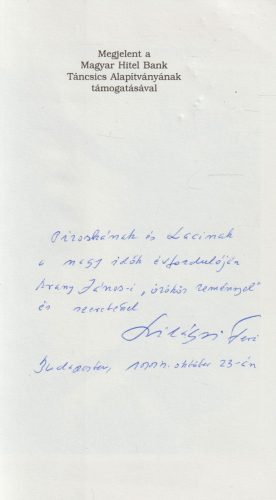 Megjelent a
Magyar Hitel Bank
Táncsics Alapítványának
támogatásával
Piroskának és Lacinak
a nagy idők évfordulóján
Arany János-i „örökös reménnyel"
és szeretettel
Feri
Budapesten, október 23-án